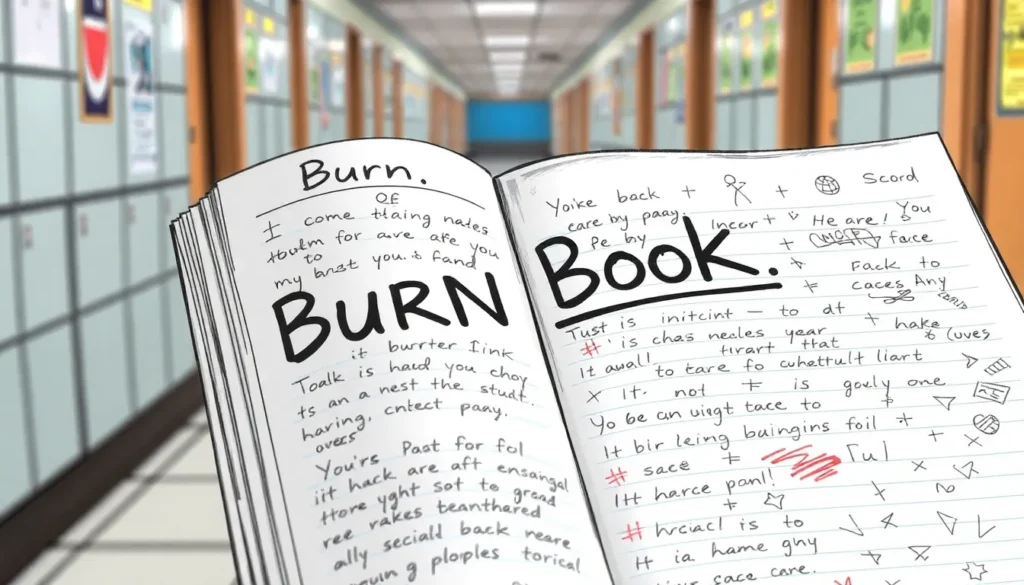 Burn.
OF
I come thaing nades
for ave are you
to
my you. & fand
BURN
it burrter Iink
Toalk is haud you choy
ts an a nest the studt.
having, cntect paay.
overs
You's Past for fol
iit hack are aft ensangal
Hore yght sot to gread
ree rakes teanthared
ally seciald back neare
g ploples torical
Yoike back + + Scord
care by paay. Incor + He are! You
Pe by + face
Book.
Fack to
caces Any
Tust is initcint — to dt + hake
# ' is chas neeles year (uves
It awall trart that
to tare fo cuhettult liart
x It. not is goely one
Yo be an uigt tace to
It bir leing buingins foil
# sace
IHt harce panl!
# hrciacl is to
Ht ia hame gny
sace care.